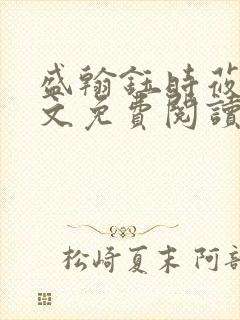 盛翰鈺時莜
文免費閱讀
松崎夏末 阿部